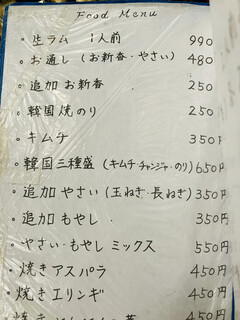 Food Menu
・生ラム 1人前 990
・お通し (お新香・やさい) 480
・追加 お新香 250
・韓国焼のり 250
・キムチ 350円
・韓国三種盛 (キムチ・チャンジャ・のり) 650円
・追加 やさい (玉ねぎ・長ねぎ) 350円
・追加 もやし 350円
・やさい・もやし ミックス 550円
・焼き アスパラ 450円
・焼き エリンギ 450円
450円